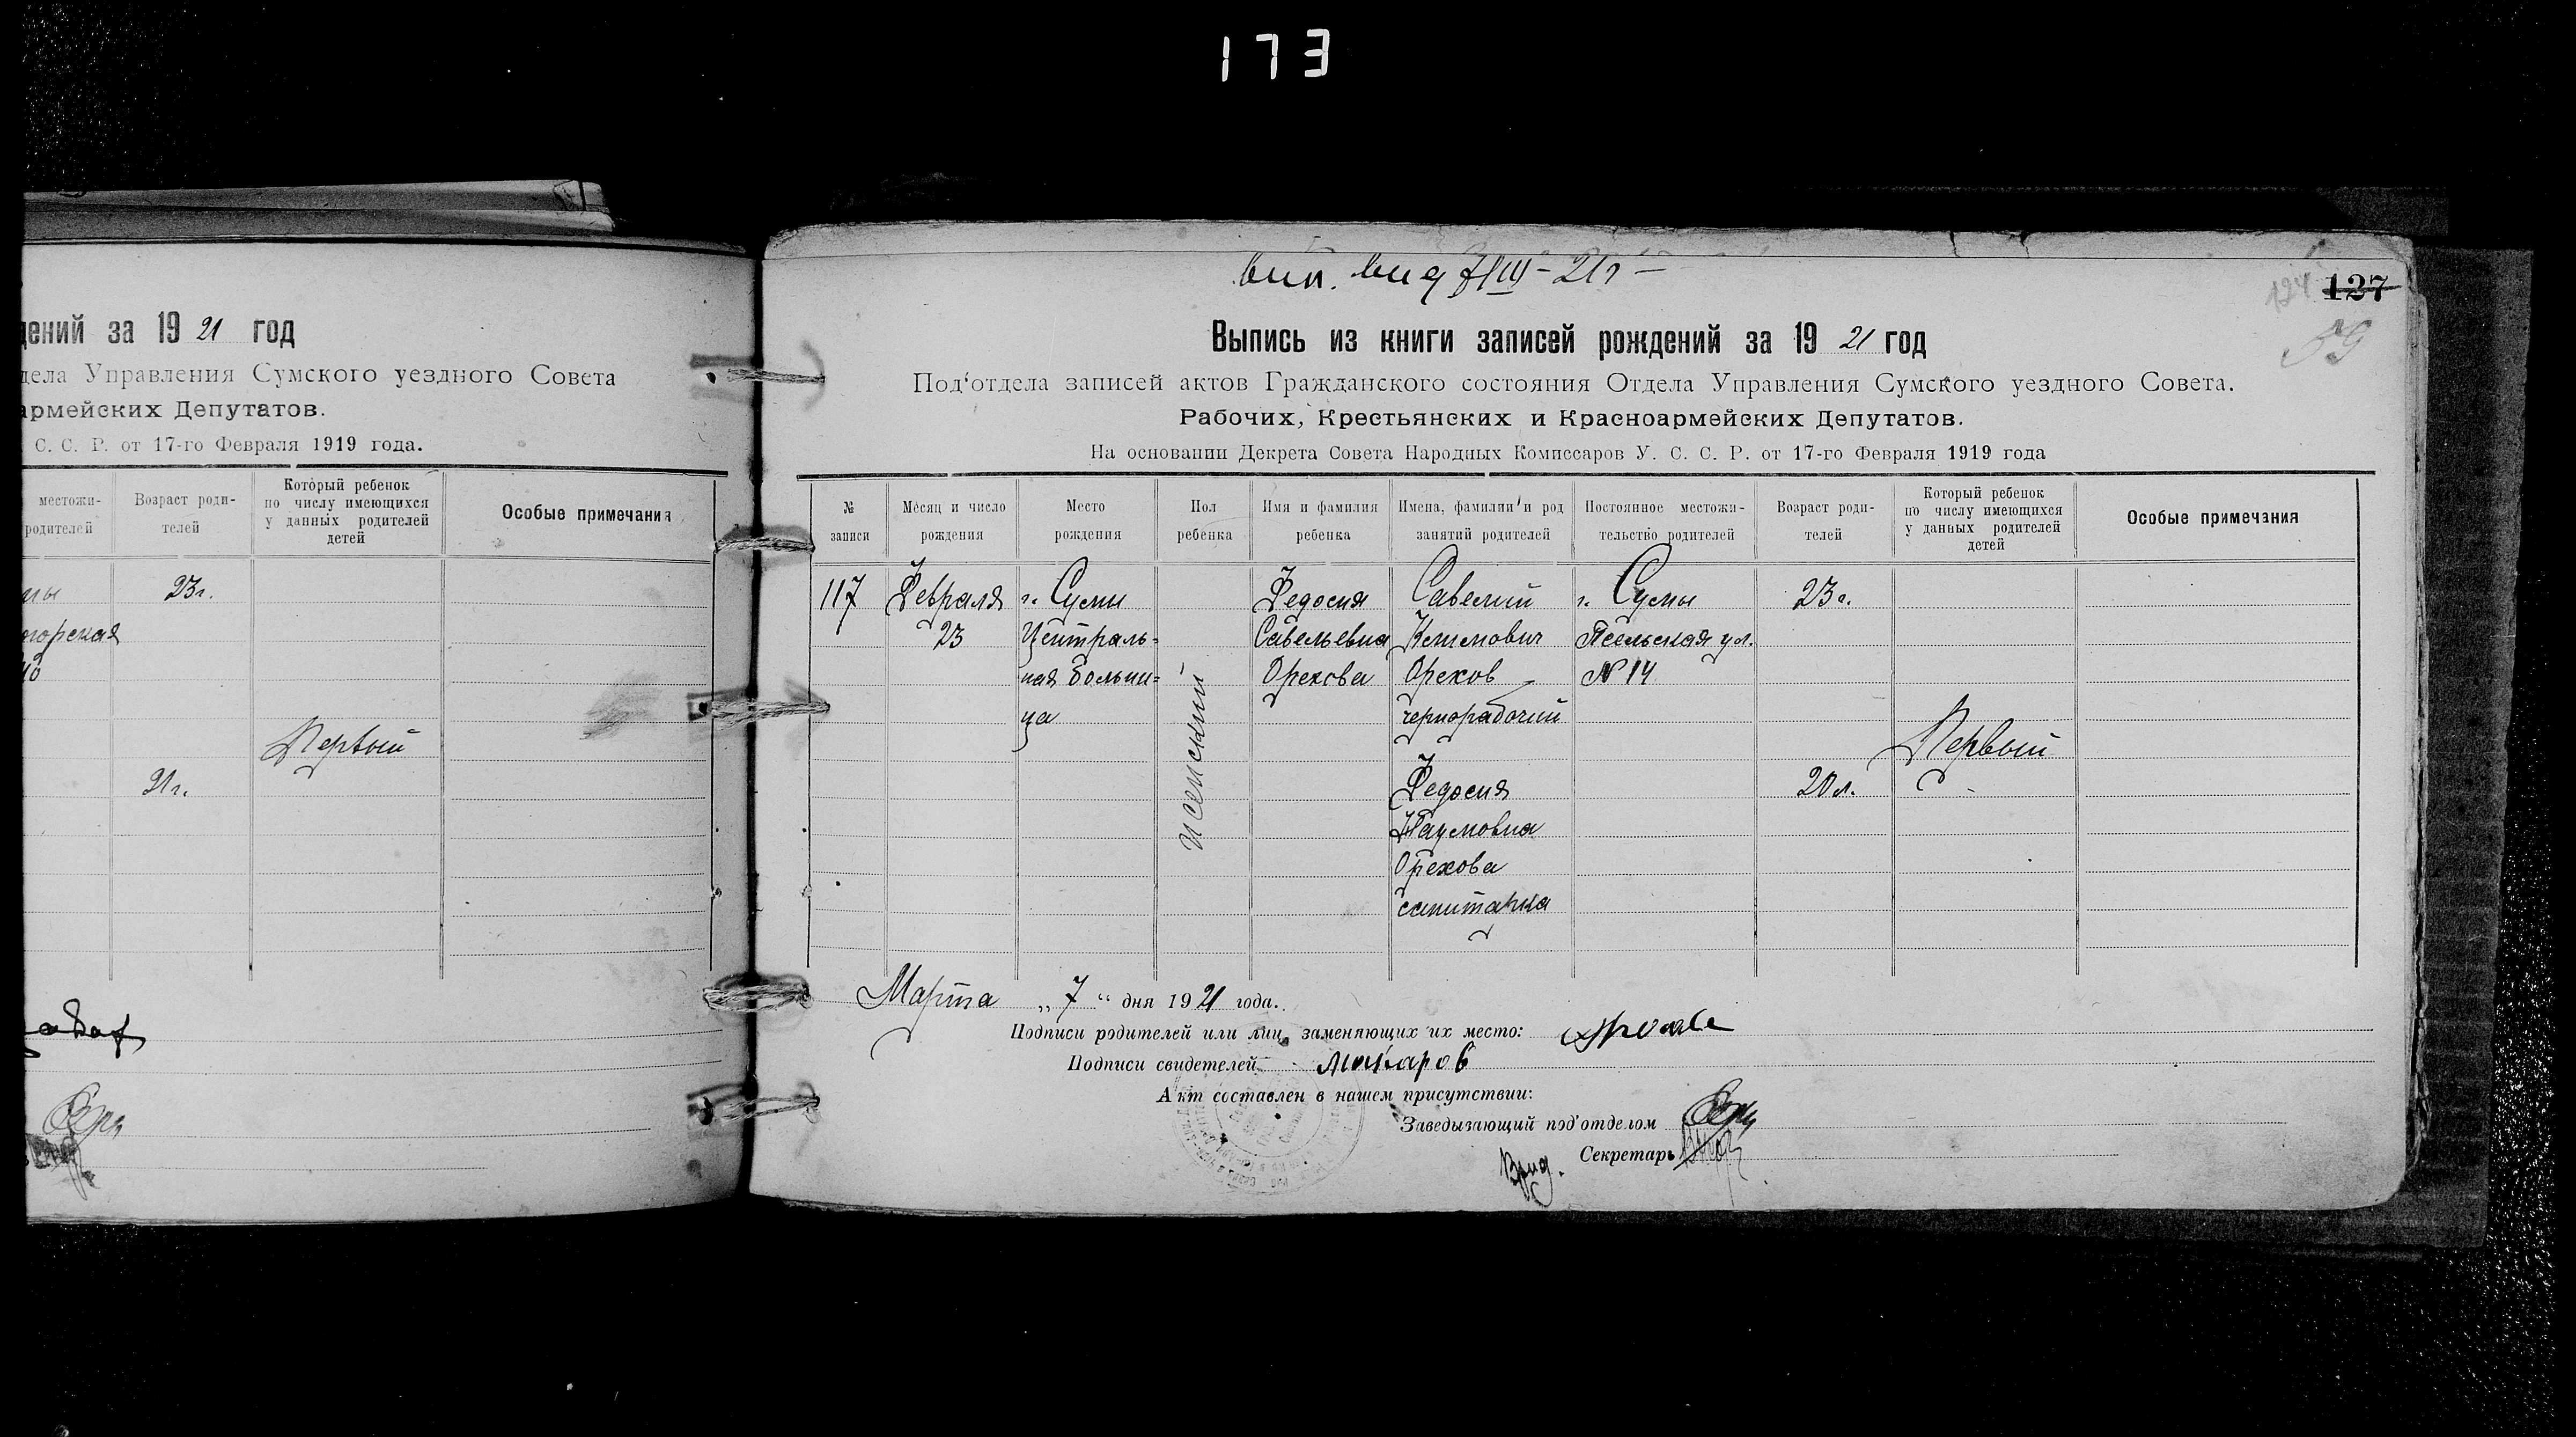 173
дений за 1921 год
дела Управления Сумского уездного Совета
армейских Депутатов.
С. С. Р. от 17-го Февраля 1919 года.
местожи-
родителей
Возраст роди-
телей
Который ребенок
по числу имеющихся
у данных родителей
детей
Особые примечания
23 г.
Первый
21 г.
вид 7/III - 21 г -
127
124
59
Выпись из книги записей рождений за 1921 год
Под'отдела записей актов Гражданского состояния Отдела Управления Сумского уездного Совета.
Рабочих, Крестьянских и Красноармейских Депутатов.
На основании Декрета Совета Народных Комиссаров У. С. С. Р. от 17-го Февраля 1919 года
№
записи
Месяц и число
рождения
Место
рождения
Пол
ребенка
Имя и фамилия
ребенка
Имена, фамилии и род
занятий родителей
Постоянное местожи-
тельство родителей
Возраст роди-
телей
Который ребенок
по числу имеющихся
у данных родителей
детей
Особые примечания
117
Февраля
23
г. Сумы
Централь=
ная больни=
ца
Женский
Федосия
Савельевна
Орехова
Савелий
Орехов
чернорабочий
Федосия
Наумовна
Орехова
санитарка
г. Сумы
Псельская ул.
№ 14
23 г.
20 л.
Первый
Марта „7“ дня 1921 года.
Подписи родителей или лиц, заменяющих их место:
Подписи свидетелей Макаров
Акт составлен в нашем присутствии:
Заведывающий под'отделом
Врид. Секретарь